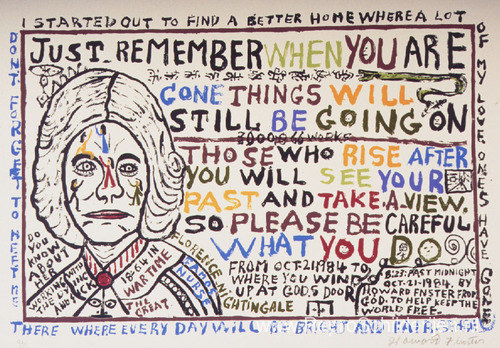 I STARTED OUT TO FIND A BETTER HOME WHERE A LOT
OF MY LOVE ONES HAVE GONE
DONT FORGET TO MEET ME
THERE WHERE EVERY DAY WILL BE BRIGHT AND FAIR
JUST REMEMBER WHEN YOU ARE
GONE THINGS WILL
STILL BE GOING ON
3000.866 WORKS
THOSE WHO RISE AFTER
YOU WILL SEE YOUR
PAST AND TAKE A VIEW.
SO PLEASE BE CAREFUL
WHAT YOU DO
FROM OCT 21 1984 TO
WHERE YOU WIND
UP AT GODS DOOR
8:23: PAST MIDNIGHT
OCT-21-1984. BY
HOWARD FNSTER FROM
GOD. TO HELP KEEP THE
WORLD FREE-
DO
YOU
KNOW
ABOUT
HER
WORKING
AND SICK
WAR TIME
THE GREAT
FLORENCE NIGHTINGALE
NURSE
Howard Finster